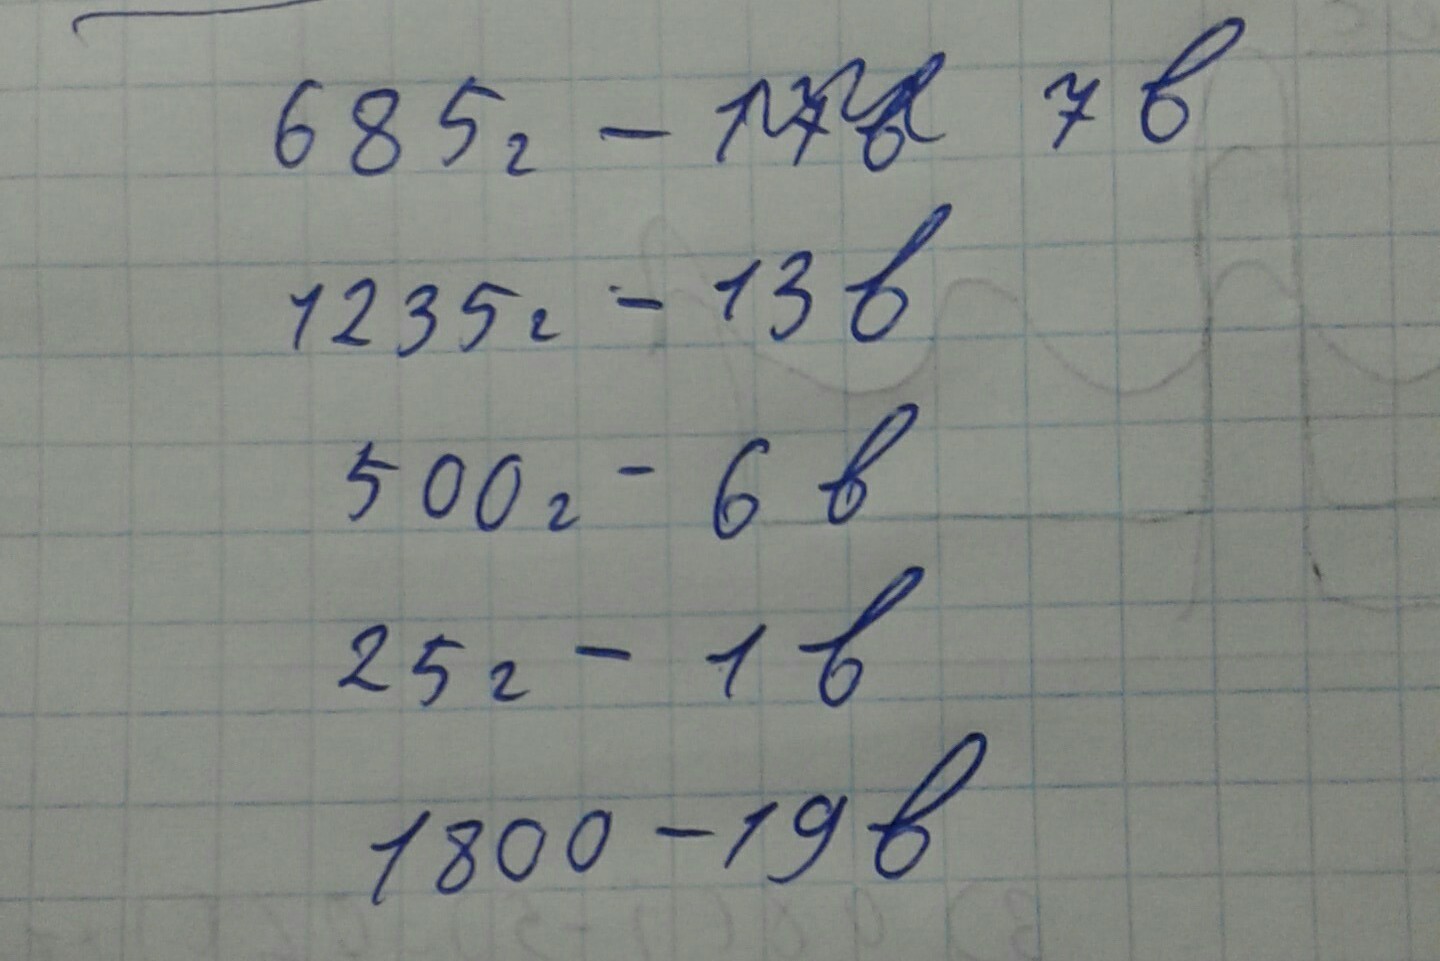 685г – 7 в
1235г – 13 в
500г – 6 в
25г – 1 в
1800 – 19 в